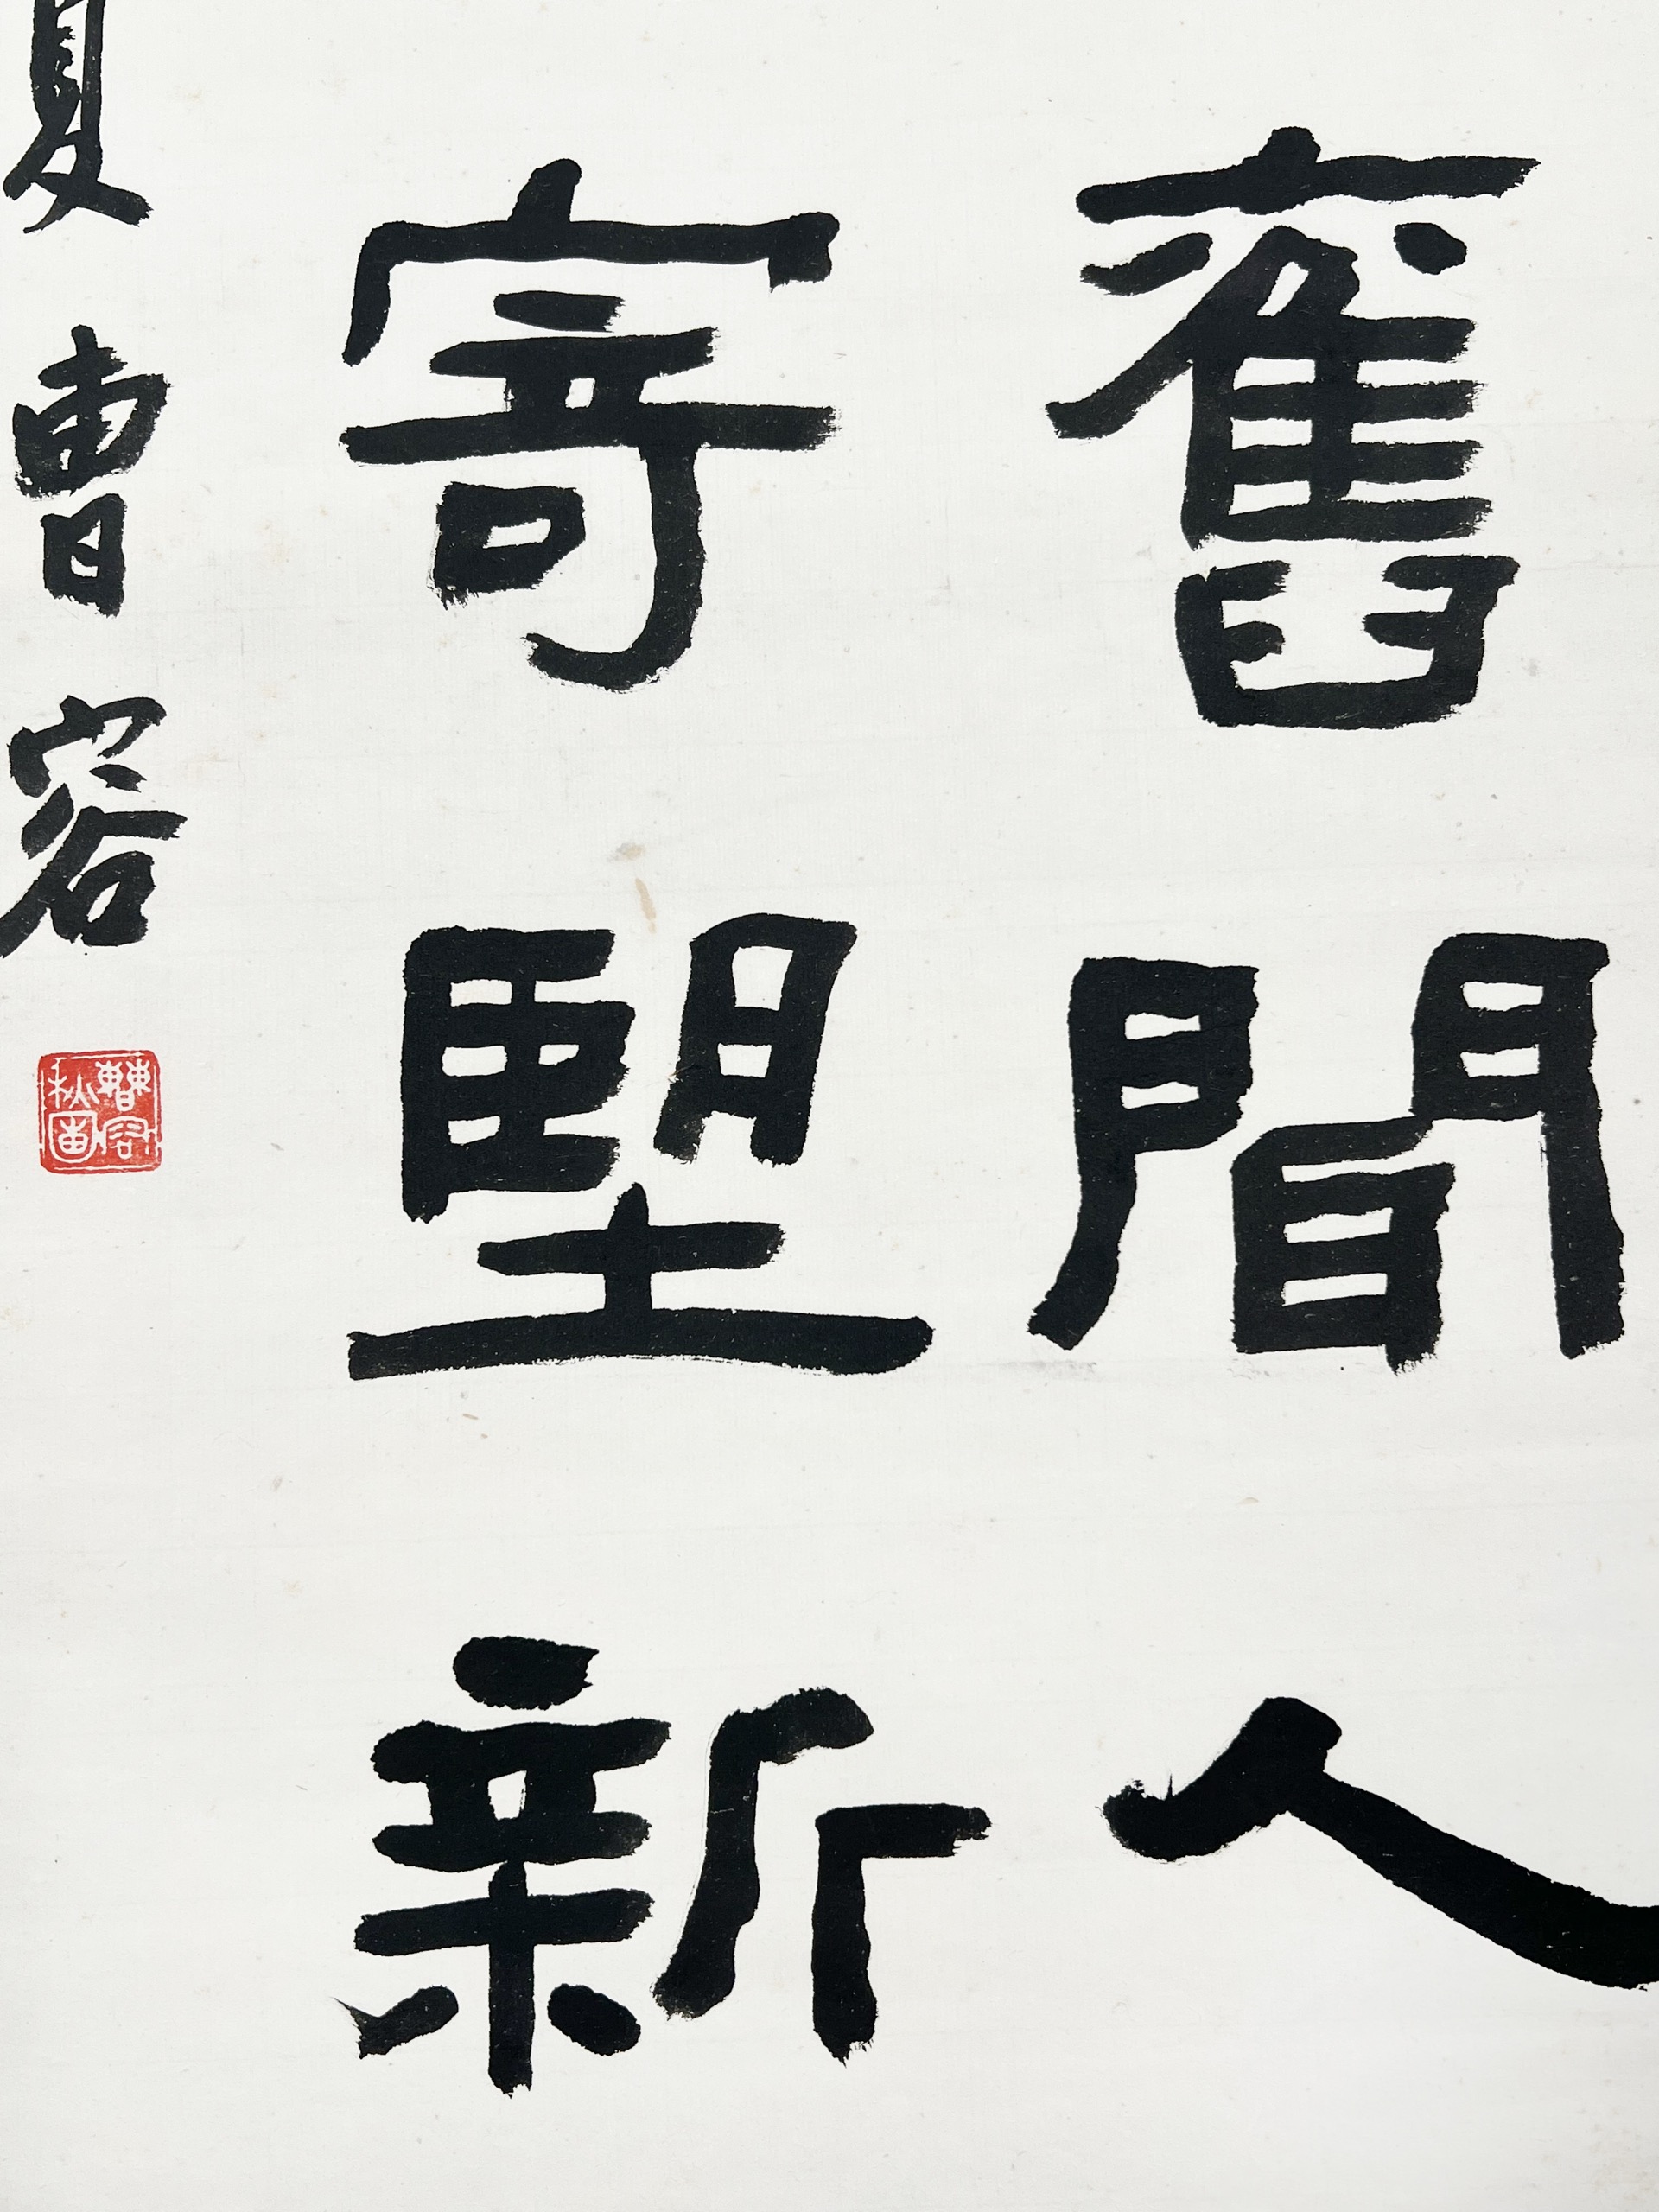 舊聞人
寄朢新
夏曹容
曹容
秋圃